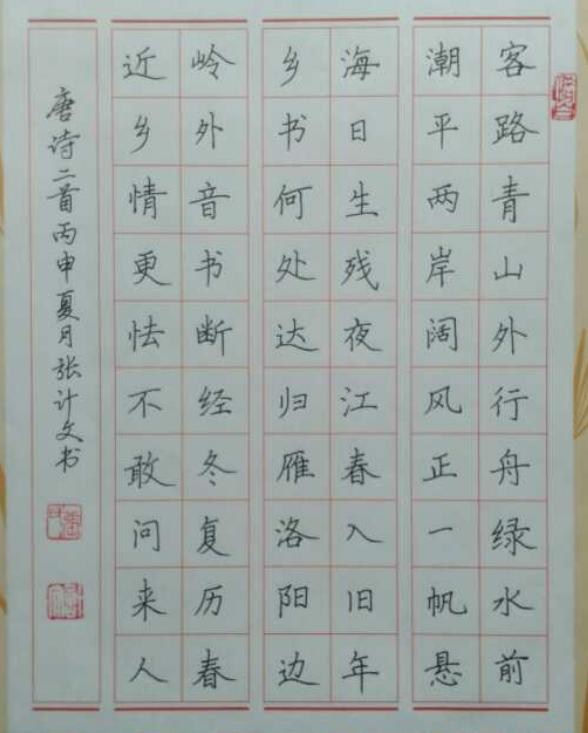 客路青山外行舟绿水前
潮平两岸阔风正一帆悬
海日生残夜江春入旧年
乡书何处达归雁洛阳边
岭外音书断经冬复历春
近乡情更怯不敢问来人
唐诗二首丙申夏月张计文书